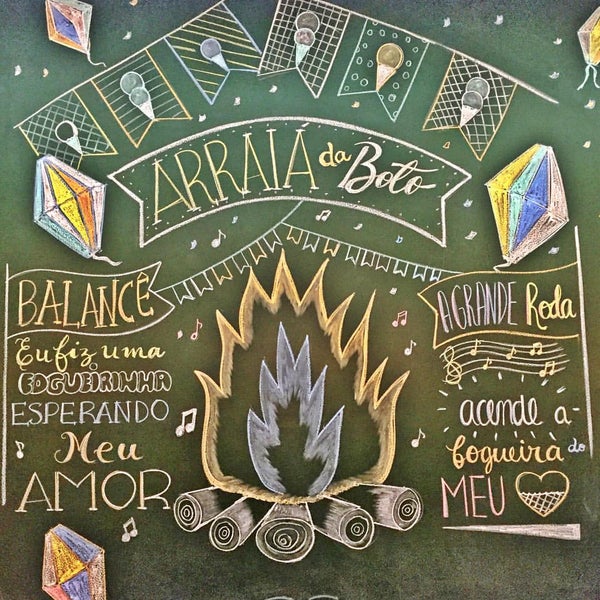 ARRAIA da Boto
BALANCÊ
Eu fiz uma
FOGUEIRINHA
ESPERANDO
Meu
AMOR
A GRANDE Roda
acende a
fogueira do
MEU